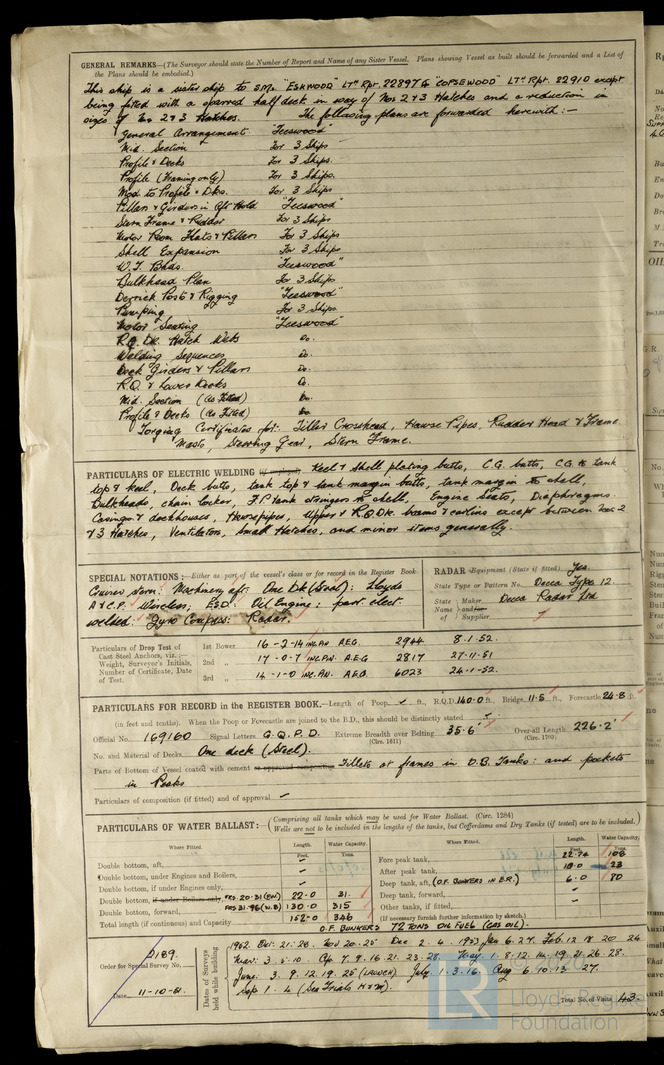 GENERAL REMARKS—(The Surveyor should state the Number of Report and Name of any Sister Vessel. Plans showing Vessel as built should be forwarded and a List of
the Plans should be embodied.)
This ship is a sister ship to S.M.s "ESKWOOD" Ltr Rpt. 22897 & "COPSEWOOD" Ltr Rpt. 22910 except
being fitted with a sparred half deck in way of Nos 2 & 3 Hatches and a reduction in
sizes of Nos 2 & 3 Hatches. The following plans are forwarded herewith:—
General Arrangement "Teeswood"
Mid. Section For 3 Ships
Profile & Decks For 3 Ships.
Profile (Framing only) For 3 Ships.
Mod to Profile & Dks. For 3 Ships
Pillars & Girders in Aft Hold "Teeswood"
Stern Frame & Rudder For 3 Ships
Motor Room Flats & Pillars For 3 Ships
Shell Expansion For 3 Ships
W.T. Bhds. "Teeswood"
Bulkhead Plan For 3 Ships
Derrick Posts & Rigging "Teeswood"
Pumping For 3 Ships
Motor Seating "Teeswood"
R.Q. Dk. Hatch Webs Do.
Welding Sequences Do.
Deck Girders & Pillars Do.
R.Q. & Lower Decks Do.
Mid. Section (As Fitted) Do.
Profile & Decks (As Fitted) Do.
Forging Certificates for: Tiller Crosshead, Hawse Pipes, Rudder Head & Frame
Masts, Steering Gear, Stern Frame.
PARTICULARS OF ELECTRIC WELDING (if employed) Keel & Shell plating butts, C.G. butts, C.G. to tank
top & keel, Deck butts, tank top & tank margin butts, tank margin to shell,
Bulkheads, chain locker, F.P. tank stringers to shell, Engine seats, Diaphragms.
Casings & deckhouses, Hawsepipes, Upper & R.Q.Dk. beams & carlins except between Nos 2
& 3 Hatches, Ventilators, Small Hatches, and minor items generally.
SPECIAL NOTATIONS:—Either as part of the vessel's class or for record in the Register Book
Cruiser stern: Machinery aft: One Dk (Steel): Lloyds
A & C.P. Wireless; ESD: Oil Engine: part elect.
welded. Gyro Compass: Radar.
RADAR Equipment (State if fitted) Yes.
State Type or Pattern No. Decca Type 12
State Name Maker and/or Supplier Decca Radar Ltd
Particulars of Drop Test of Cast Steel Anchors, viz.:—
Weight, Surveyor's Initials, Number of Certificate, Date of Test.
1st Bower 16-2-14 INC.PN. A.E.G. 2944 8.1.52.
2nd " 17-0-7 INC.PN. A.E.G 2817 27-11-51
3rd " 14-1-0 INC.PN. A.E.G. 6023 24-1-52.
PARTICULARS FOR RECORD in the REGISTER BOOK.—Length of Poop ft., R.Q.D. 140.0 ft., Bridge 11.5 ft., Forecastle 24.8 ft.
(in feet and tenths). When the Poop or Forecastle are joined to the B.D., this should be distinctly stated
Official No. 169160 Signal Letters G.Q.P.D. Extreme Breadth over Belting 35.6' Over-all Length 226.2'
(Circ. 1611) (Circ. 1703)
No. and Material of Decks One deck (Steel).
Parts of Bottom of Vessel coated with cement or approved composition Fillets at frames in D.B. Tanks: and pockets
in Peaks
Particulars of composition (if fitted) and of approval
PARTICULARS OF WATER BALLAST:—(Comprising all tanks which may be used for Water Ballast. (Circ. 1284)
Wells are not to be included in the lengths of the tanks, but Cofferdams and Dry Tanks (if tested) are to be included.)
Where Fitted. Length. Water Capacity. Where Fitted. Length. Water Capacity.
Feet. Tons. Feet. Tons.
Double bottom, aft, Fore peak tank, 22.74 108
Double bottom, under Engines and Boilers, After peak tank, 18.0 23
Double bottom, if under Engines only, Deep tank, aft, (O.F. BUNKERS IN E.R.) 6.0 80
Double bottom, if under Boilers only, FRS 20-31 (FW) 22.0 31. Deep tank, forward,
Double bottom, forward, FRS 31-96 (W.B) 130.0 315 Other tanks, if fitted,
Total length (if continuous) and Capacity 152.0 346 (If necessary furnish further information by sketch.)
O.F. BUNKERS 72 TONS OIL FUEL (GAS OIL).
Order for Special Survey No. 2189.
Date 11-10-51.
Dates of Surveys held while building
1952 Oct. 21. 28. Nov 20. 25 Dec 2. 4. 1953 Jan 6. 27. Feb. 12 18 20 24
Mar. 3. 5. 10 Ap. 7. 9. 16. 21. 23. 28. May. 1. 8. 12. 14. 19. 21. 26. 28.
June. 3. 9. 12. 19. 25 (LAUNCH) July. 1. 3. 16. Aug 6. 10. 13. 27.
Sep 1. 4 (Sea Trials H & M).
Total No. of Visits 43.
LR Lloyd's Register
Foundation